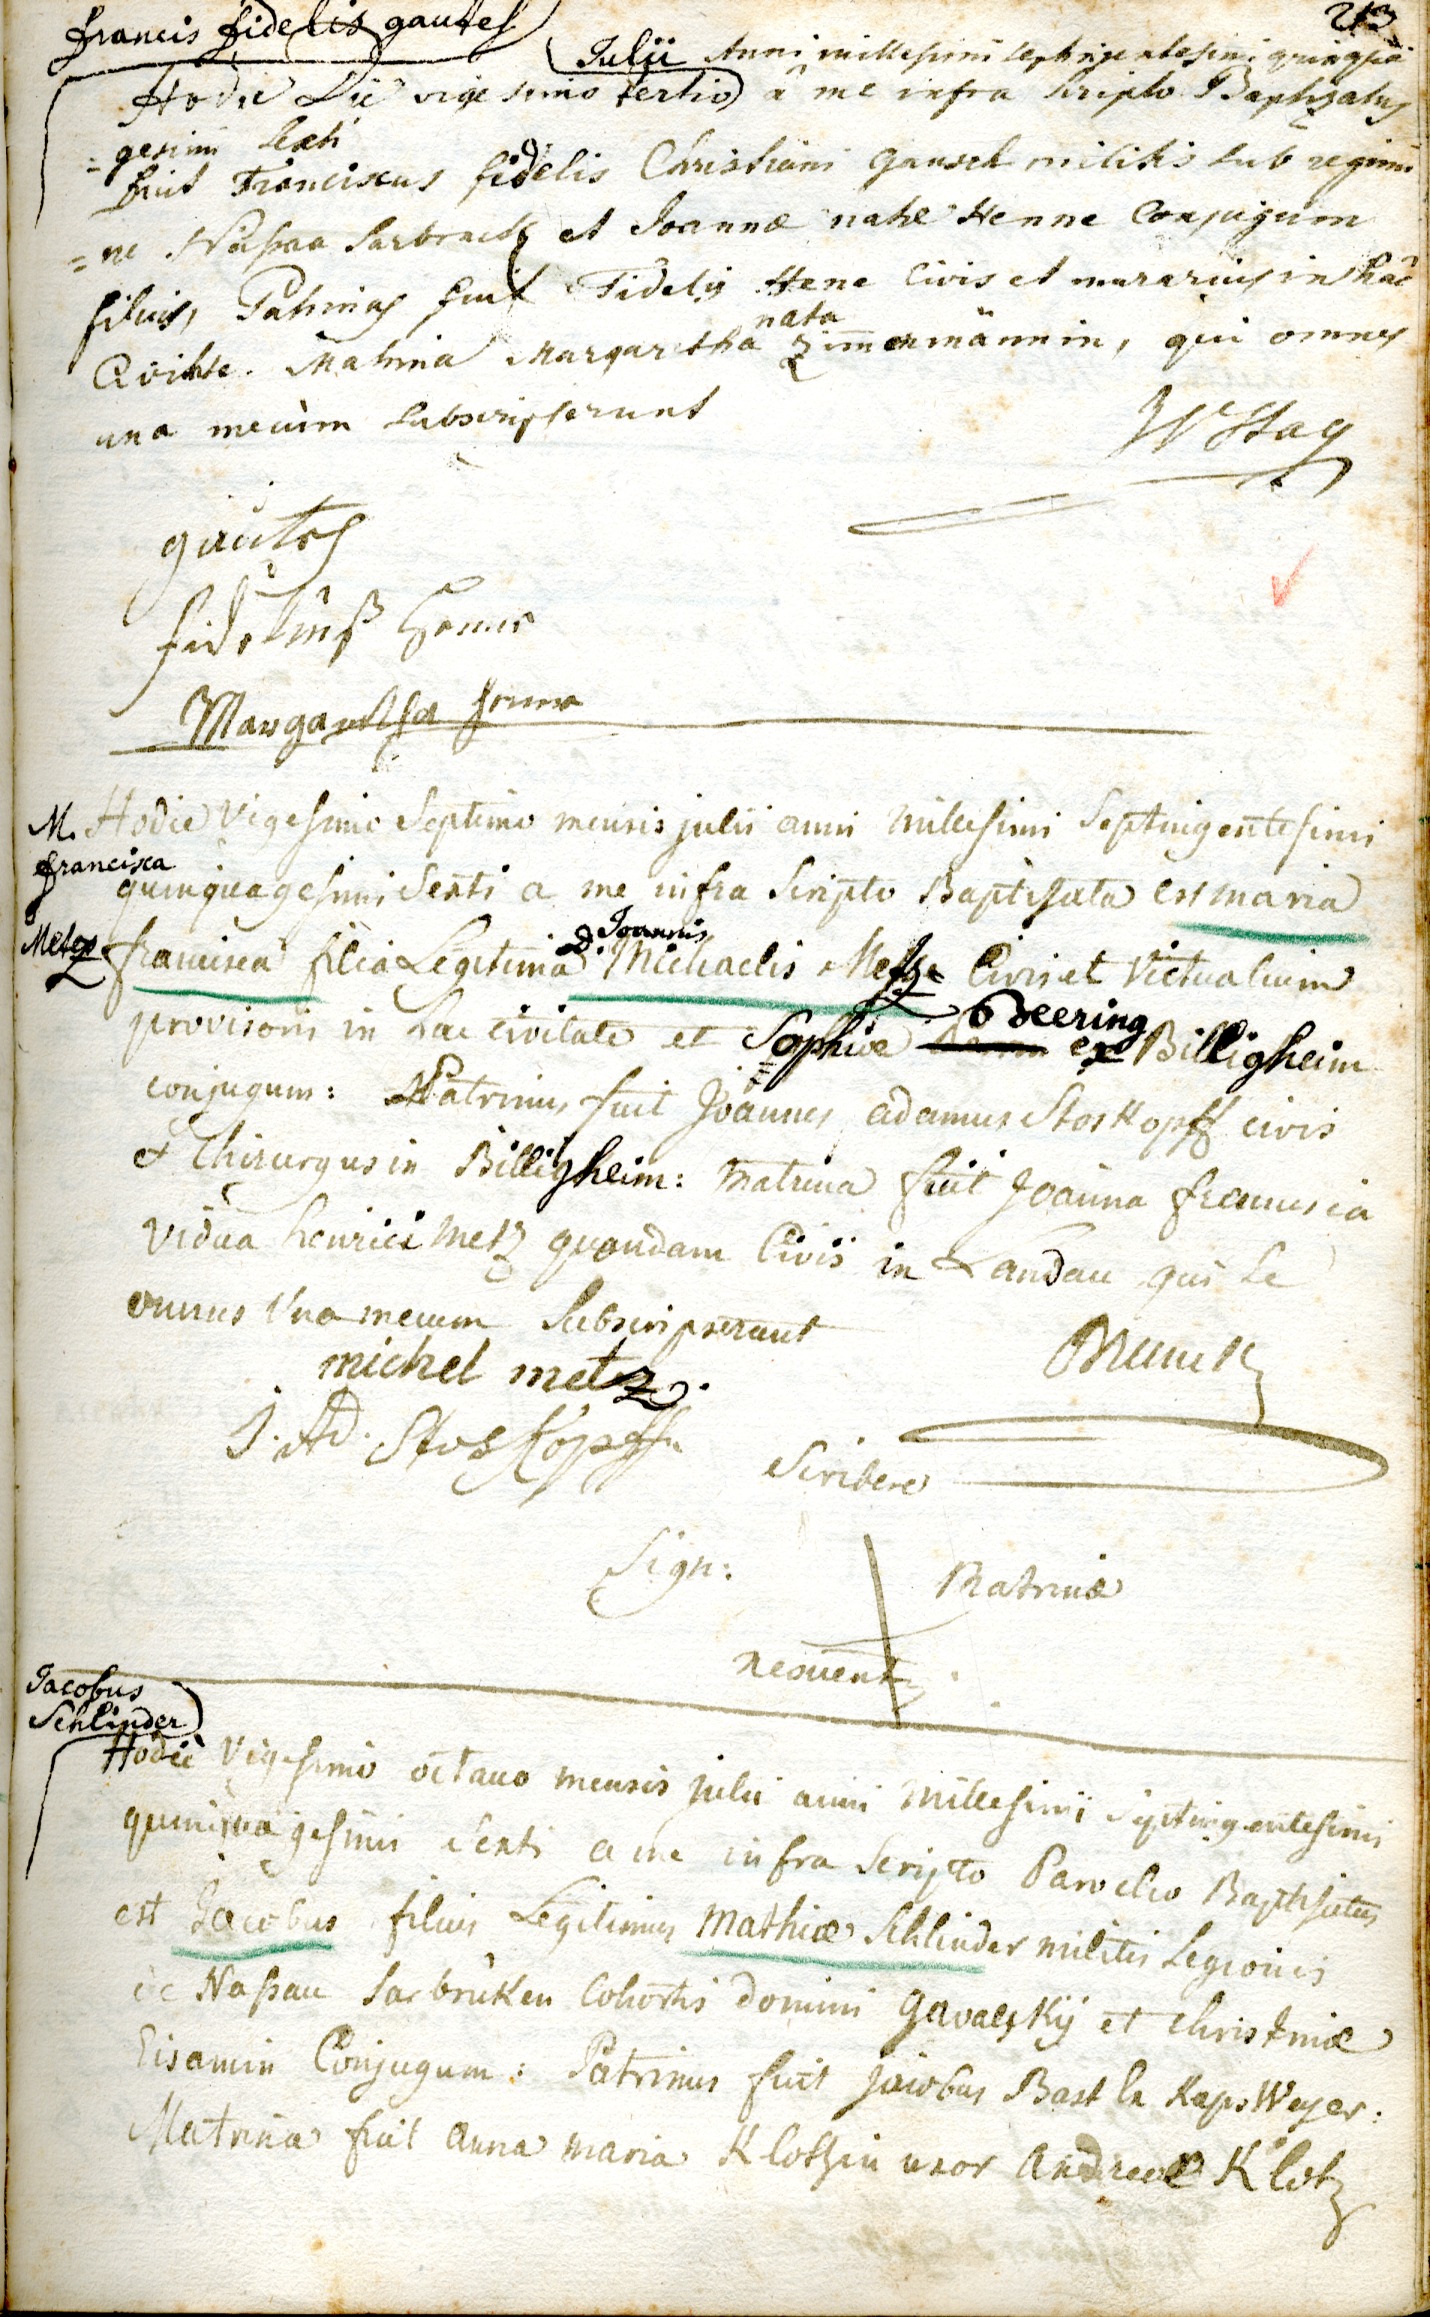 213
francis fidelis gautes
Julii Anni millesimi septingentesimi quinqua
Hodie Die vigesimo tertio â me infra scripto Baptizatus
=gesimi sexti
fuit Franciscus fidelis Christiani gautsch militis sub regimi
=ne Naßaa Sarbruck et Joannæ natæ Henne Conjugum
filius, Patrinus fuit Fidelis Hene Civis et murarius in hac
nata
Civitate. Matrina Margaretha Zimmermännin, qui omnes
una mecum subscripserunt
gautes
fidelius henne
Margaretha henne
M. Hodie Vigesimo Septimo mensis julii anni Millesimi Septingentesimi
francisca
quinquagesimi Sexti a me infra Scripto Baptisata est maria
Metz
Joannis
francisca filia Legitima D. Michaelis Metze Civis et Victualium
provisoris in hac civitate et Sophiæ Odeering ex Billigheim
conjugum: Patrinus fuit Joannes adamus Stoskopff civis
& Chirurgus in Billigheim: Matrina fuit Joanna francisca
Vidua henrici Metz quondam Civis in Landau qui se
omnes Una mecum Subscripserunt
michel metz.
J. Ad. Stoskopff
Scribere
Sign: Matrinæ
nescient
Jacobus
Schlinder
Hodie Vigesimo octavo mensis julii anni Millesimi Septingentesimi
quinquagesimi Sexti a me infra Scripto Parocho Baptisatus
est Jacobus filius Legitimus Mathiæ Schlinder militis Legionis
de Naßau Sarbrüken Cohortis domini Gavalskij et Christinæ
Eisamin Conjugum: Patrinus fuit jacobus Bast Kaps Weyer:
Matrina fuit anna maria Klotzin uxor andreæ Klotz